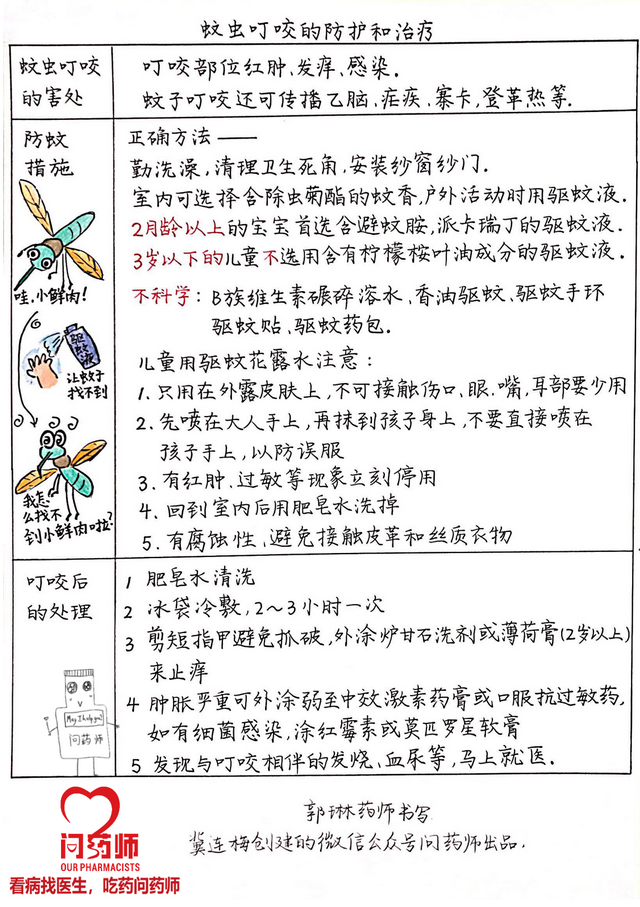 蚊虫叮咬的防护和治疗
蚊虫叮咬
的害处
叮咬部位红肿、发痒、感染.
蚊子叮咬还可传播乙脑、疟疾、寨卡,登革热等.
防蚊
措施
哇,小鲜肉!
驱蚊液
让蚊子
找不到
我怎
么找不
到小鲜肉啦?
正确方法 ——
勤洗澡,清理卫生死角,安装纱窗纱门.
室内可选择含除虫菊酯的蚊香,户外活动时用驱蚊液.
2月龄以上的宝宝首选含避蚊胺,派卡瑞丁的驱蚊液.
3岁以下的儿童不选用含有柠檬桉叶油成分的驱蚊液.
不科学:B族维生素碾碎溶水、香油驱蚊、驱蚊手环
驱蚊贴、驱蚊药包.
儿童用驱蚊花露水注意:
1.只用在外露皮肤上,不可接触伤口、眼.嘴,耳部要少用
2.先喷在大人手上,再抹到孩子身上,不要直接喷在
孩子手上,以防误服
3.有红肿、过敏等现象立刻停用
4.回到室内后用肥皂水洗掉
5.有腐蚀性、避免接触皮革和丝质衣物
叮咬后
的处理
May I help you?
问药师
1 肥皂水清洗
2 冰袋冷敷,2~3小时一次
3 剪短指甲避免抓破,外涂炉甘石洗剂或薄荷膏(2岁以上)
来止痒
4 肿胀严重可外涂弱至中效激素药膏或口服抗过敏药,
如有细菌感染,涂红霉素或莫匹罗星软膏
5 发现与叮咬相伴的发烧、血尿等,马上就医.
郭琳药师书写
冀连梅创建的微信公众号问药师出品.
问药师
OUR PHARMACISTS
看病找医生,吃药问药师